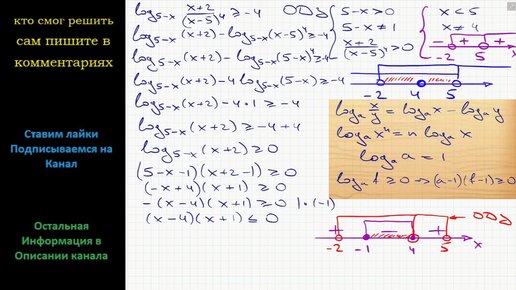 кто смог решить
сам пишите в
комментариях
Ставим лайки
Подписываемся на
Канал
Остальная
Информация в
Описании канала
log₅₋ₓ (x+2)/(x-5)⁴ ≥ -4
log₅₋ₓ(x+2) - log₅₋ₓ(x-5)⁴ ≥ -4
log₅₋ₓ(x+2) - log₅₋ₓ(5-x)⁴ ≥ -4
log₅₋ₓ(x+2) - 4 log₅₋ₓ(5-x) ≥ -4
log₅₋ₓ(x+2) - 4·1 ≥ -4
log₅₋ₓ(x+2) ≥ -4+4
log₅₋ₓ(x+2) ≥ 0
(5-x-1)(x+2-1) ≥ 0
(-x+4)(x+1) ≥ 0
-(x-4)(x+1) ≥ 0 |·(-1)
(x-4)(x+1) ≤ 0
ОДЗ
5-x > 0
5-x ≠ 1
(x+2)/(x-5)⁴ > 0
x < 5
x ≠ 4
- + +
-2 5 x
-2 4 5 x
logₐ x/y = logₐ x - logₐ y
logₐ xⁿ = n logₐ x
logₐ a = 1
logₐ f ≥ 0 → (a-1)(f-1) ≥ 0
ОДЗ
+ - +
-2 -1 4 5 x